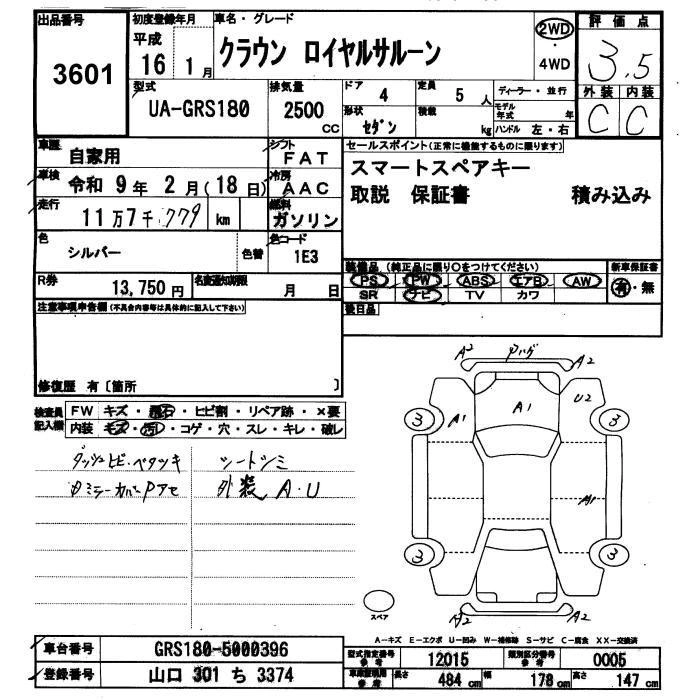 出品番号 初度登録年月 車名・グレード 2WD 評価点
3601 平成16 1月 クラウン ロイヤルサルーン ・ 4WD 3.5
型式 排気量 ドア 4 定員 5人 ディーラー・並行 外装 内装
UA-GRS180 2500cc 形状 セダン 積載 kg モデル年式 年 ハンドル 左・右 C C
車歴 自家用 シフト FAT セールスポイント(正常に機能するものに限ります)
車検 令和 9年 2月(18日) 冷房 AAC スマートスペアキー
走行 11万7千779 km 燃料 ガソリン 取説 保証書 積み込み
色 シルバー 色替 色コード 1E3
装備品(純正品に限り○をつけてください) 新車保証書
R券 13,750円 名変通知期限 月 日 PS PW ABS エアB AW 有・無
SR ナビ TV カワ
注意事項申告欄(不具合内容等は具体的に記入して下さい) 後日品
修復歴 有〔箇所 〕
検査員記入欄 FW キズ・飛石・ヒビ割・リペア跡・×要
内装 キズ・汚・コゲ・穴・スレ・キレ・破レ
ダッシュヒビ・ベタツキ シートシミ
ミラーカバーPアセ 外装 A・U
A2 A2
A1 A1 U2
3 3
A1
3 3
A2 A2
スペア
A-キズ E-エクボ U-凹み W-補修跡 S-サビ C-腐食 XX-交換済
車台番号 GRS180-5000396 型式指定番号 参考 12015 類別区分番号 参考 0005
登録番号 山口 301 ち 3374 参考 長さ 484cm 幅 178cm 高さ 147cm